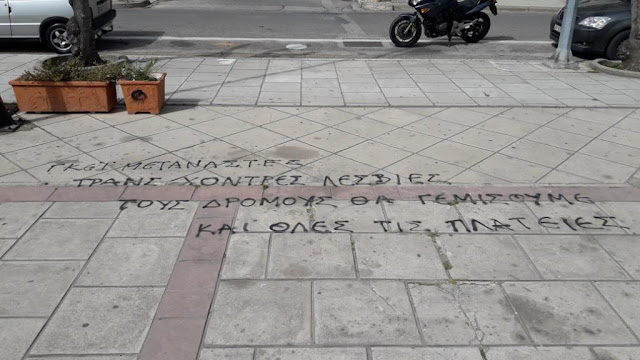 ΜΕΤΑΝΑΣΤΕΣ
ΤΡΑΝΣ ΧΟΝΤΡΕΣ ΛΕΣΒΙΕΣ
ΤΟΥΣ ΔΡΟΜΟΥΣ ΘΑ ΓΕΜΙΣΟΥΜΕ
ΚΑΙ ΟΛΕΣ ΤΙΣ ΠΛΑΤΕΙΕΣ